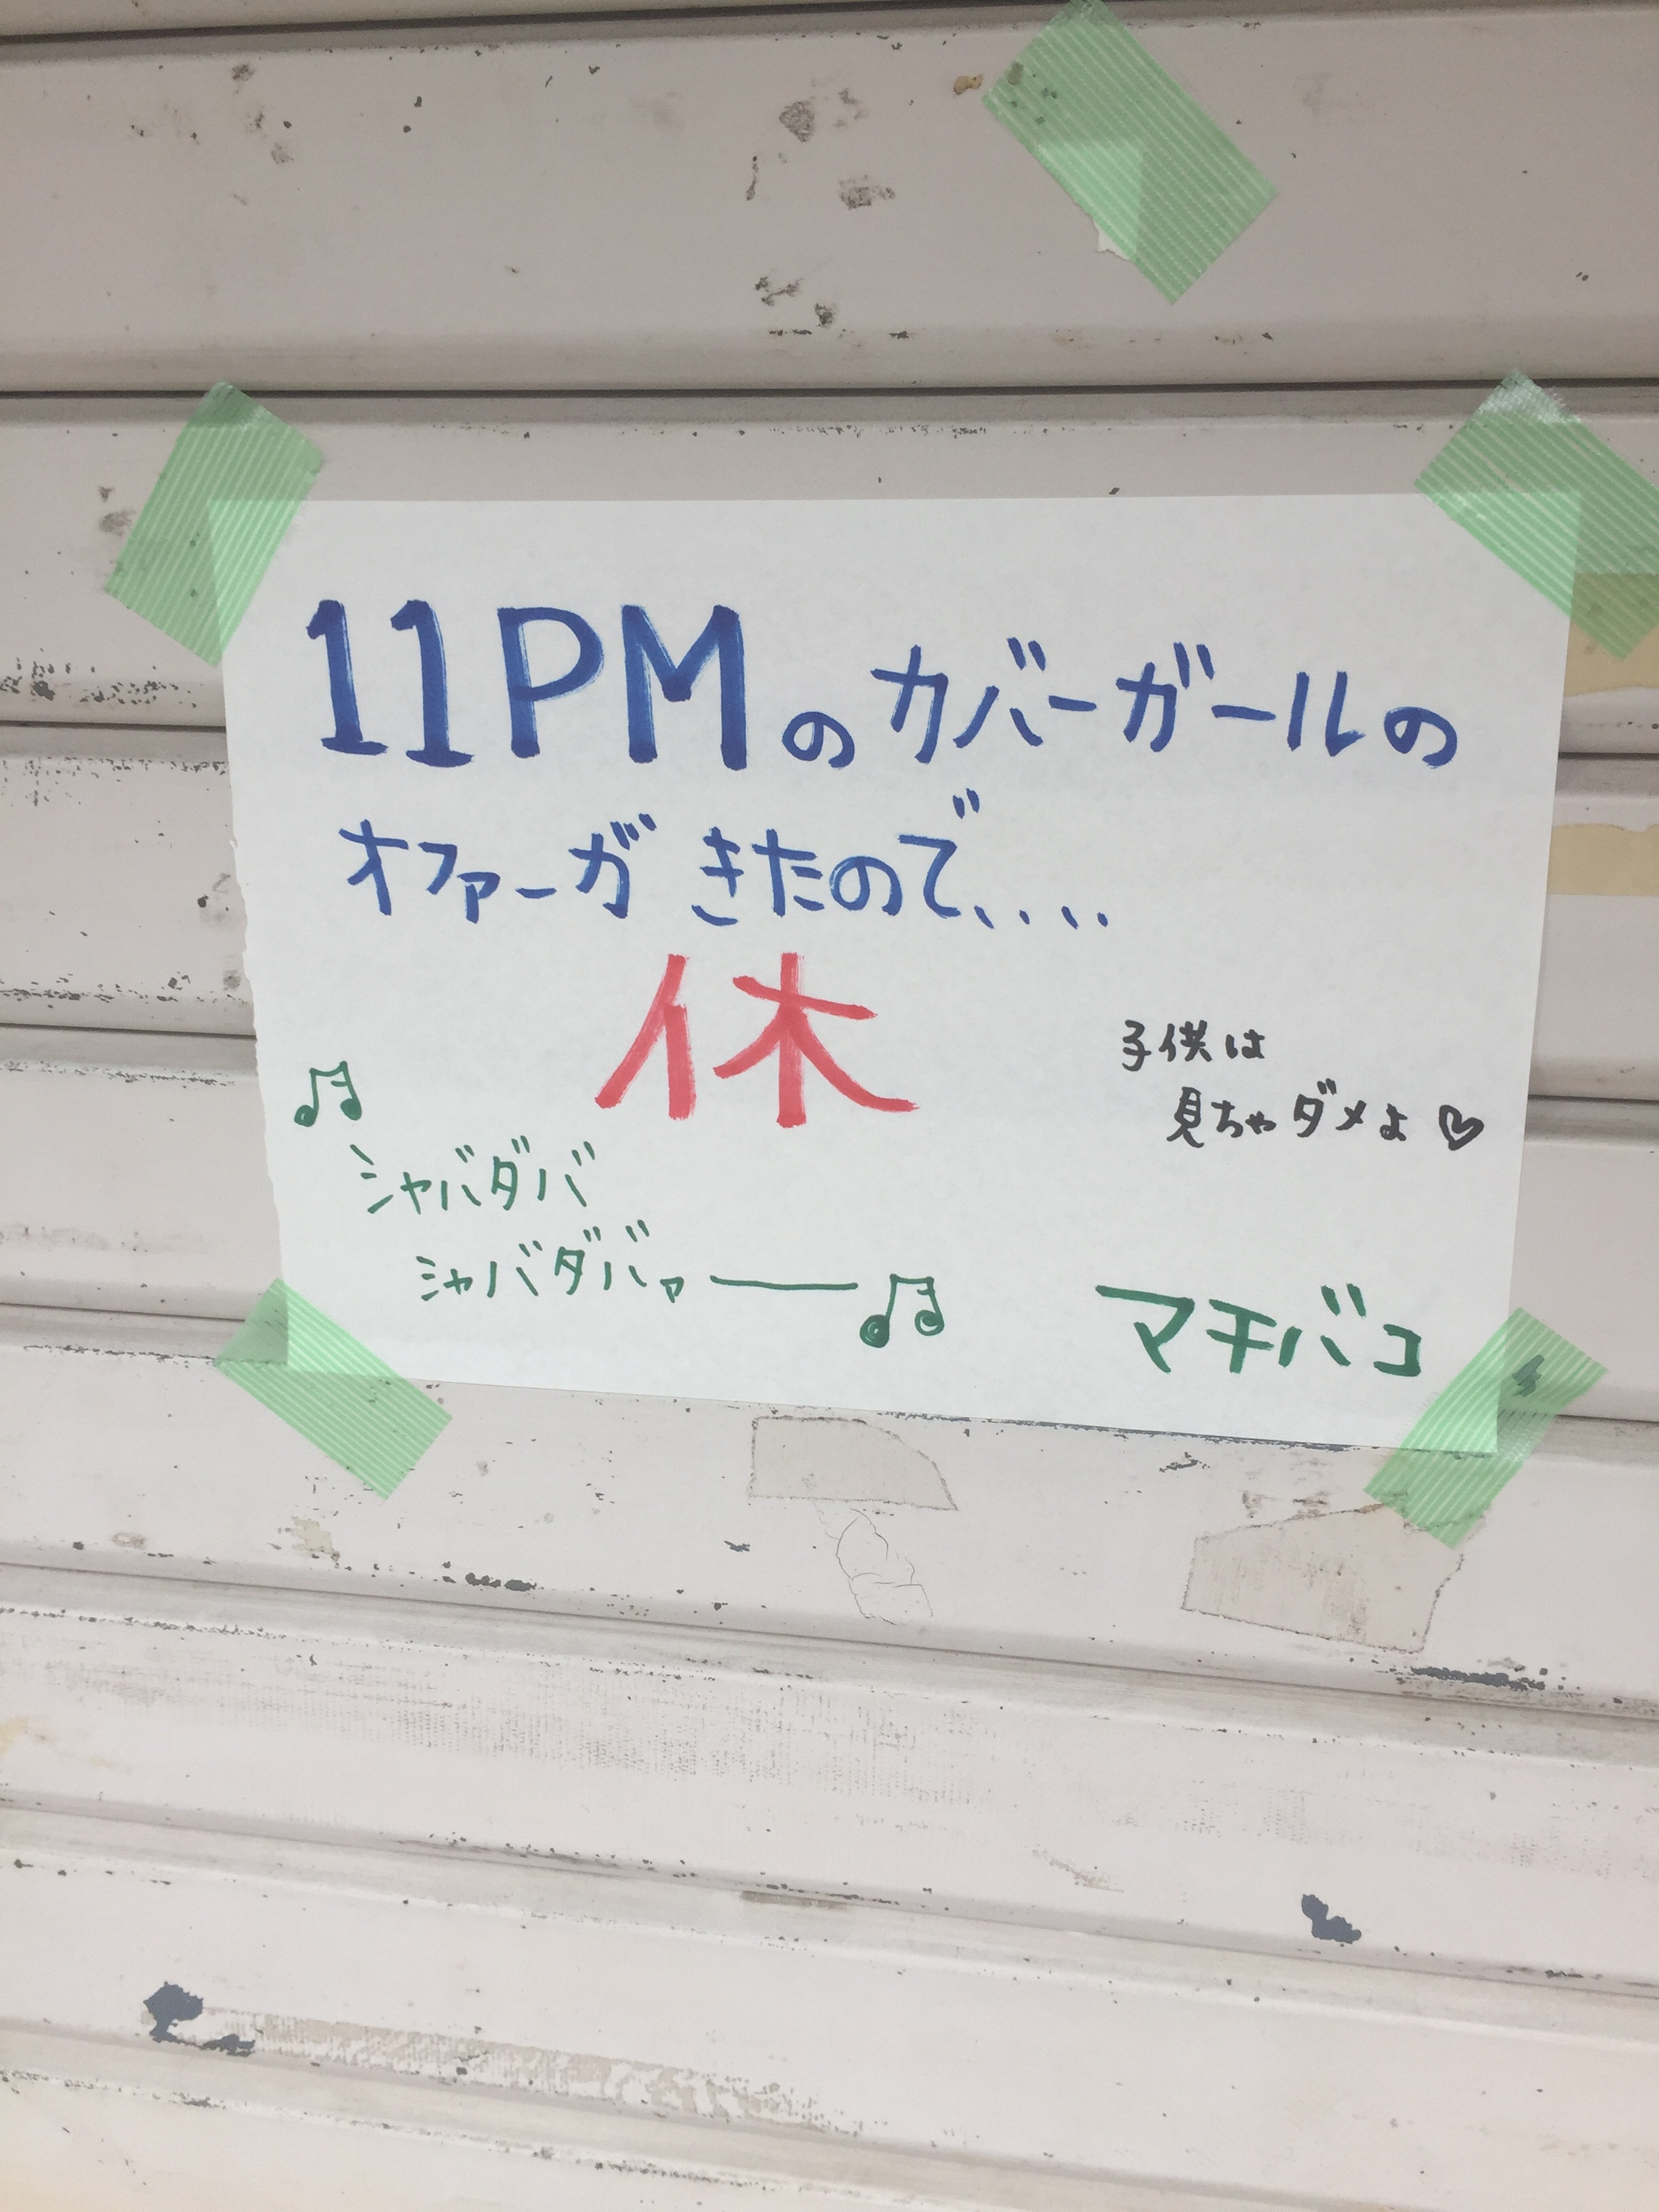 11PMのカバーガールの
オファーがきたので、...
休
子供は
見ちゃダメよ♡
♫
シャバダバ
シャバダバァー♫
マチバコ